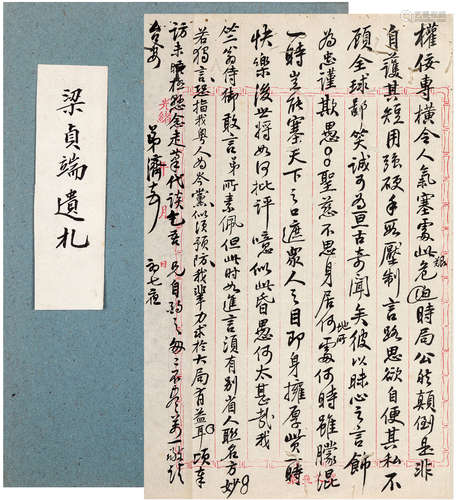 梁貞端遺札
權佞專橫令人氣塞處此危時局公然顛倒是非
自護其短用強硬手段壓制言路思欲自便其私不
顧全球鄙笑誠可為亘古奇聞矣彼以昧心之言飾
為忠謹欺愚聖慈不思身居何處何時雖朦混
一時豈能塞天下之口遮眾人之目即身擁厚貲一時
快樂後世將如何批評噫似此昏愚何太甚哉我
竺翁侍御敢言弟所素佩但此時如進言須有別省人聯名方妙
若獨言恐指我粵人為岑黨似須預防我輩力求於大局有益耳頃奉
訪未晤念走筆代談乞吾兄自酌之匆不盡萬一敬頌
台安 弟濟 初七夜
光緒 月 日